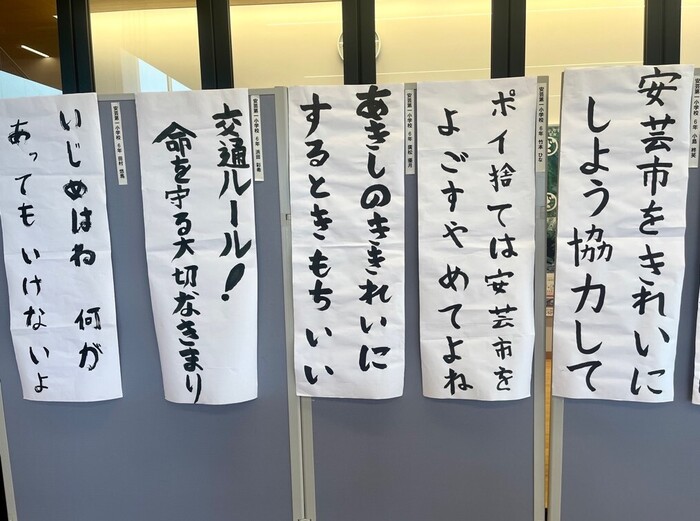 安芸市をきれいに
しよう協力して
ポイ捨ては安芸市を
よごすやめてよね
安芸第一小学校 6年 竹本 ひな
あきしのききれいに
するときもちいい
安芸第一小学校 6年
交通ルール!
命を守る大切なきまり
安芸第一小学校 6年
いじめはね 何が
あってもいけないよ
安芸第一小学校 6年